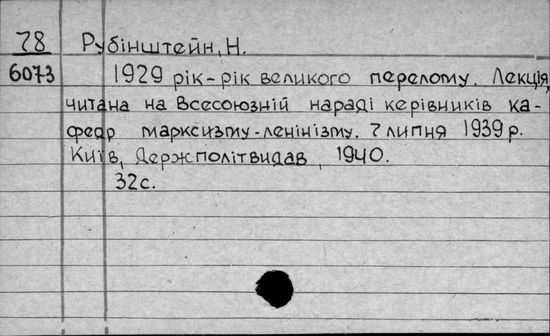 78 Рубінштейн, Н.
6073 1929 рік-рік великого перелому. Лекція,
читана на Всесоюзній нараді керівників ка-
федр марксизму-ленінізму. 7 липня 1939 р.
Київ, Держполітвидав, 1940.
32с.